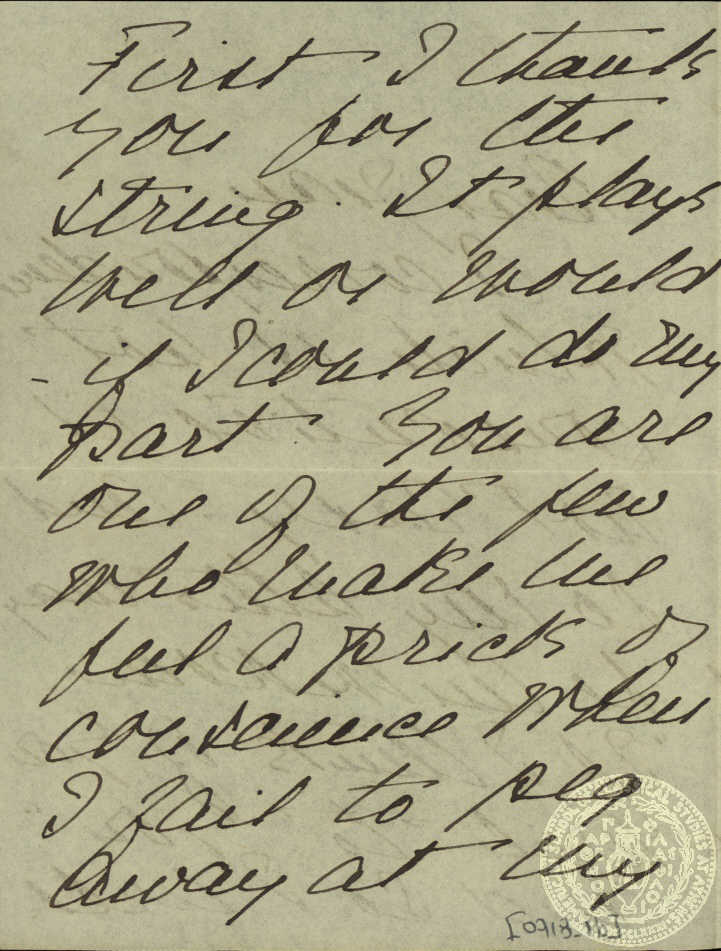 First I thank
you for the
string. It plays
well or would
- if I could do my
part You are
one of the few
who make me
feel a prick of
conscience when
I fail to peg
away at my